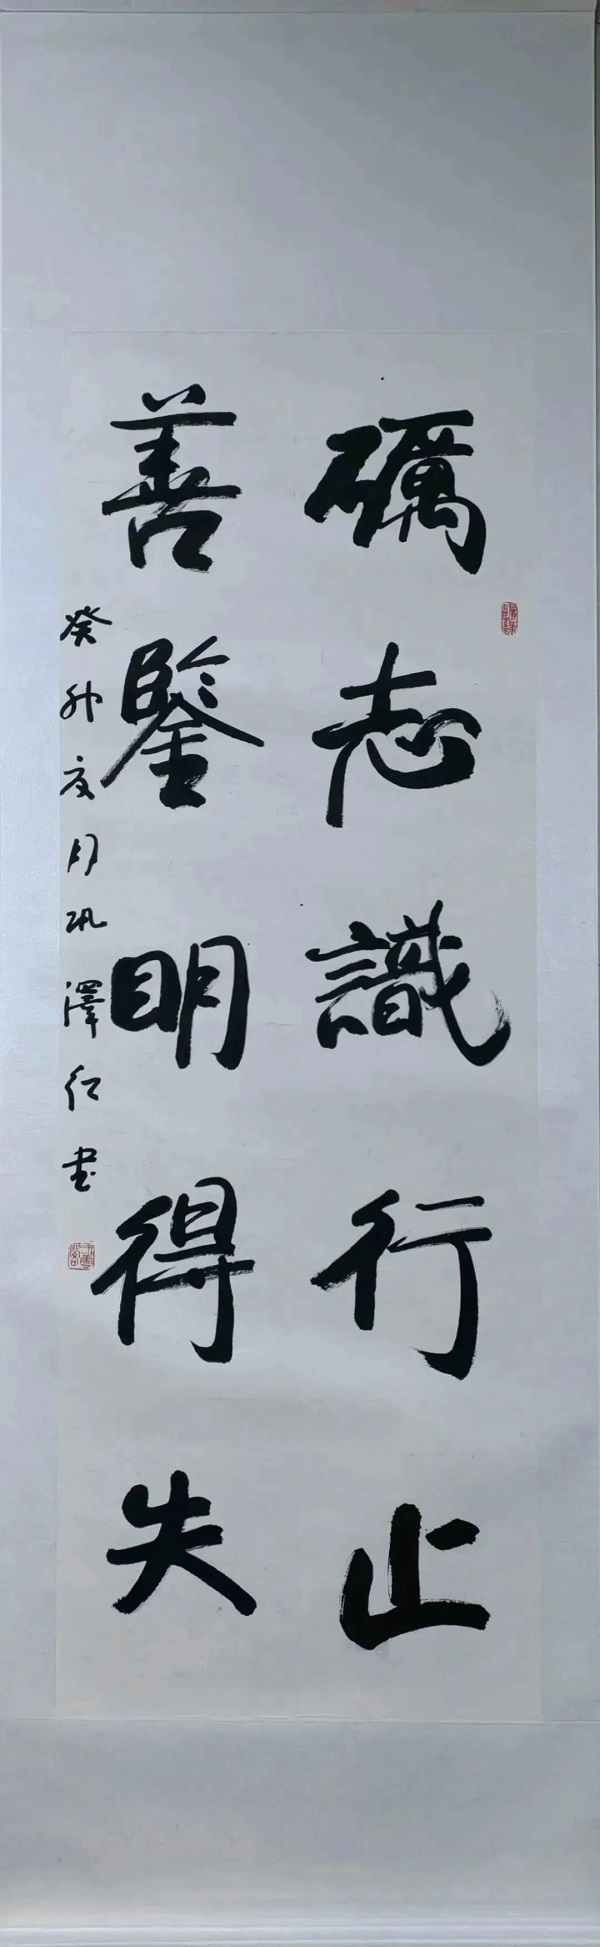 礪志識行止
善鑒明得失
癸卯夏月巩澤红書